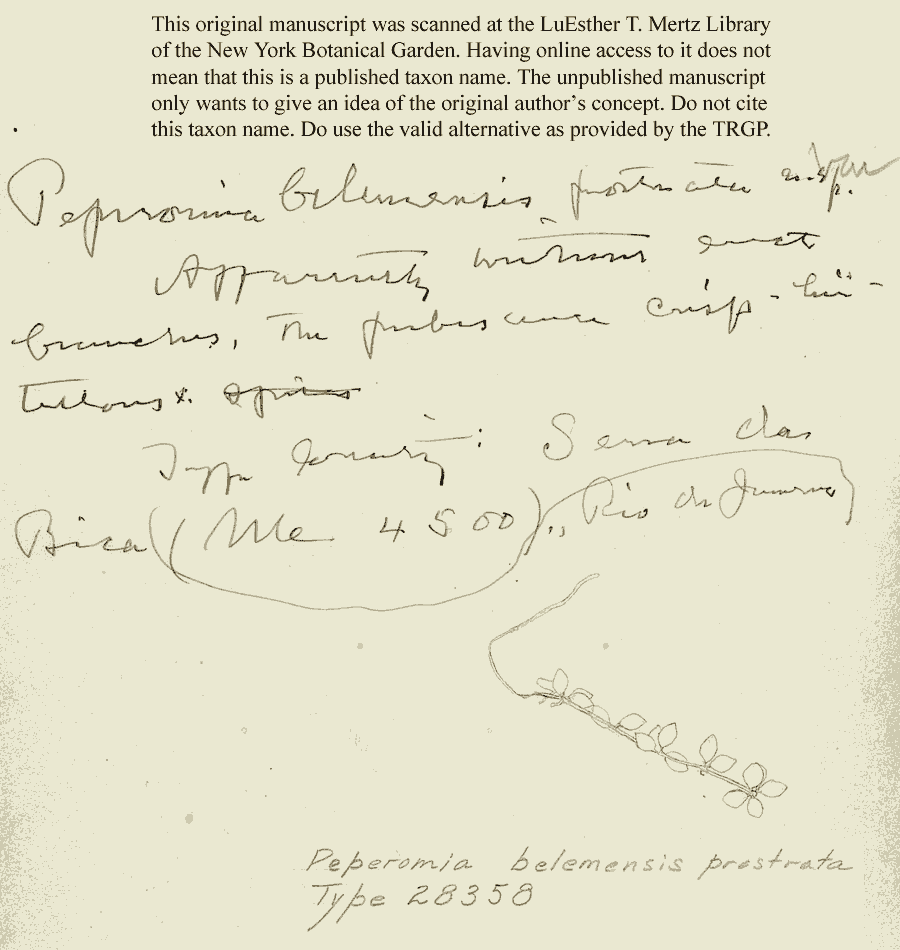 This original manuscript was scanned at the LuEsther T. Mertz Library
of the New York Botanical Garden. Having online access to it does not
mean that this is a published taxon name. The unpublished manuscript
only wants to give an idea of the original author's concept. Do not cite
this taxon name. Do use the valid alternative as provided by the TRGP.
Peperomia belemensis prostrata n. sp.
Apparently without erect
branches, the pubescence crisp-
Type locality: Serra das
Bica (Ule 4500), Rio de Janeiro
Peperomia belemensis prostrata
Type 28358